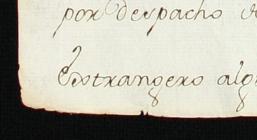 por despacho
Extrangero alg